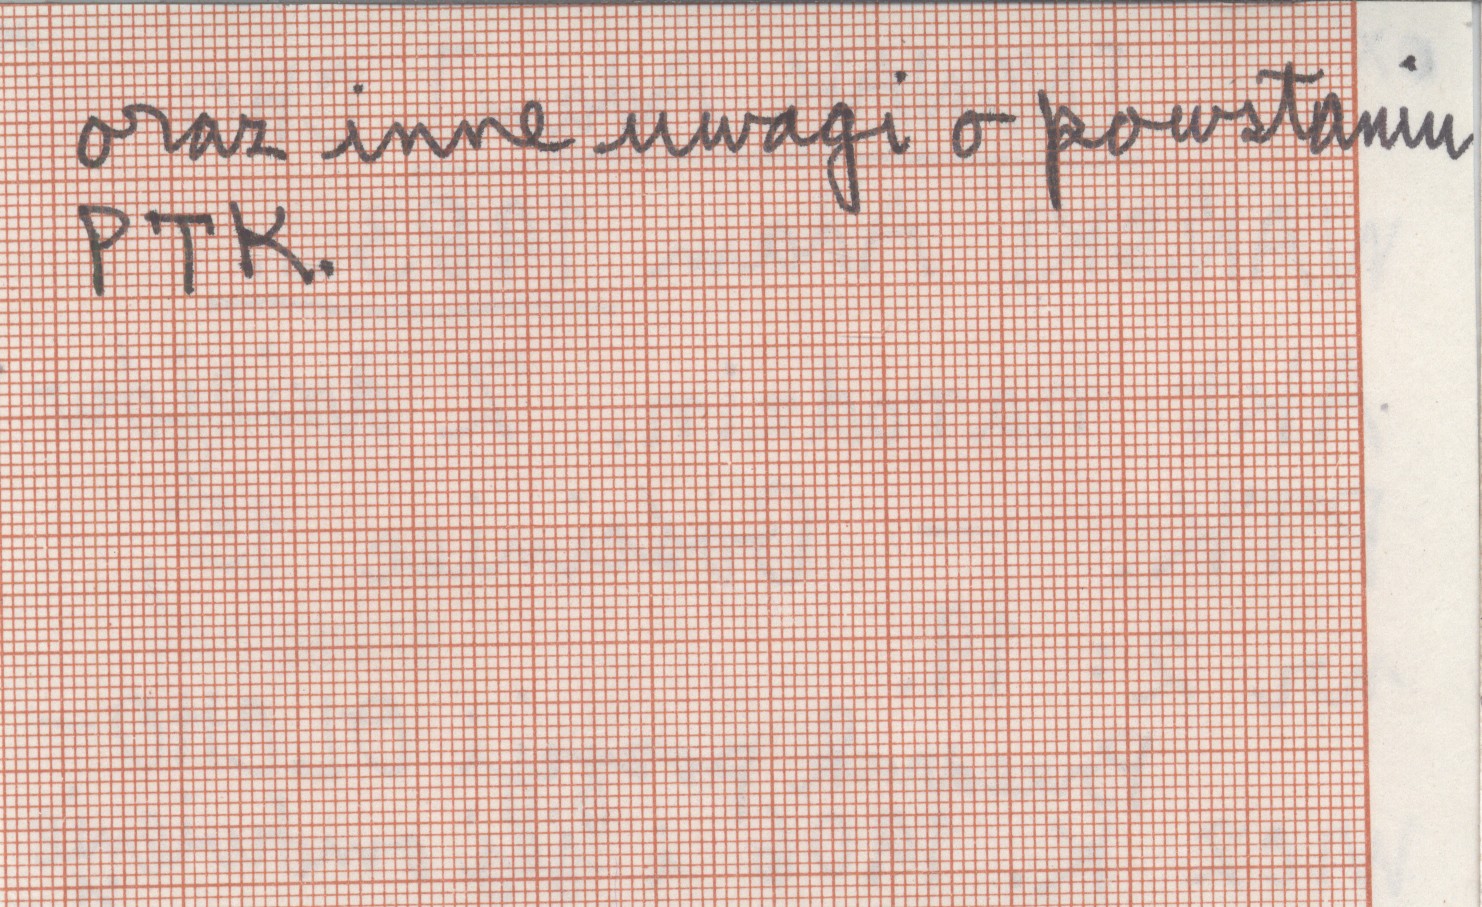 oraz inne uwagi o powstaniu
PTK.